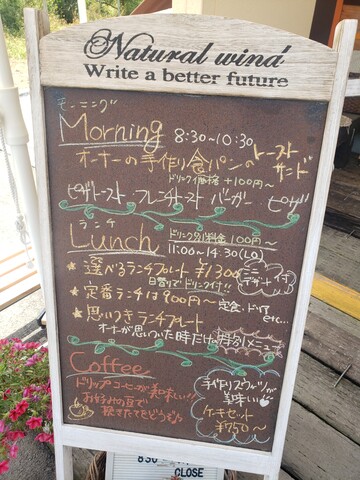 Natural wind
Write a better future
モーニング
Morning 8:30~10:30
オーナーの手作り食パンのトースト サンド
ドリンク価格 +100円~
ピザトースト フレンチトースト バーガー ピザ
ランチ
Lunch ドリンク別料金 100円~
11:00~14:30(LO)
★選べるランチプレート ¥1300 ミニデザート付
日替りでドリンク付!!
★定番ランチは900円~ 定食、ドリア etc...
★思いつきランチプレート
オーナーが思いついた時だけの特別メニュー
Coffee
ドリップコーヒーが美味しい!!
お好みの豆で、
挽きたてをどうぞ♪
手作りスウィーツが
美味しい
ケーキセット
¥750~
830
CLOSE